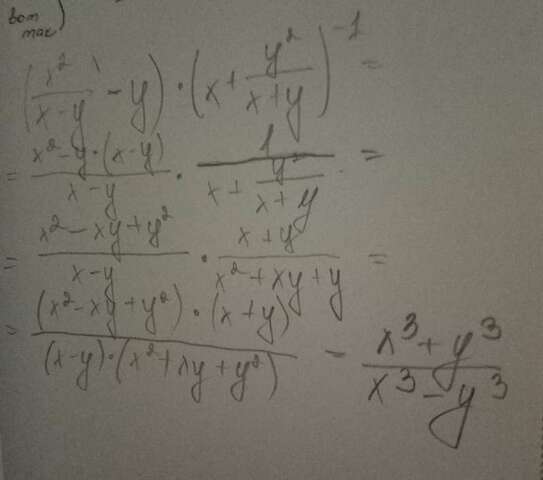 вот
так)
(x²/(x-y) - y) · (x + y²/(x+y))⁻¹ =
= (x²-y·(x-y))/(x-y) · 1/(x + y²/(x+y)) =
= (x²-xy+y²)/(x-y) · (x+y)/(x²+xy+y) =
= ((x²-xy+y²)·(x+y))/((x-y)·(x²+xy+y²)) = (x³+y³)/(x³-y³)